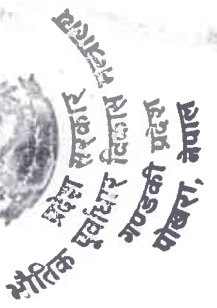 प्रदेश सरकार
भौतिक पूर्वाधार विकास मन्त्रालय
गण्डकी प्रदेश
पोखरा, नेपाल